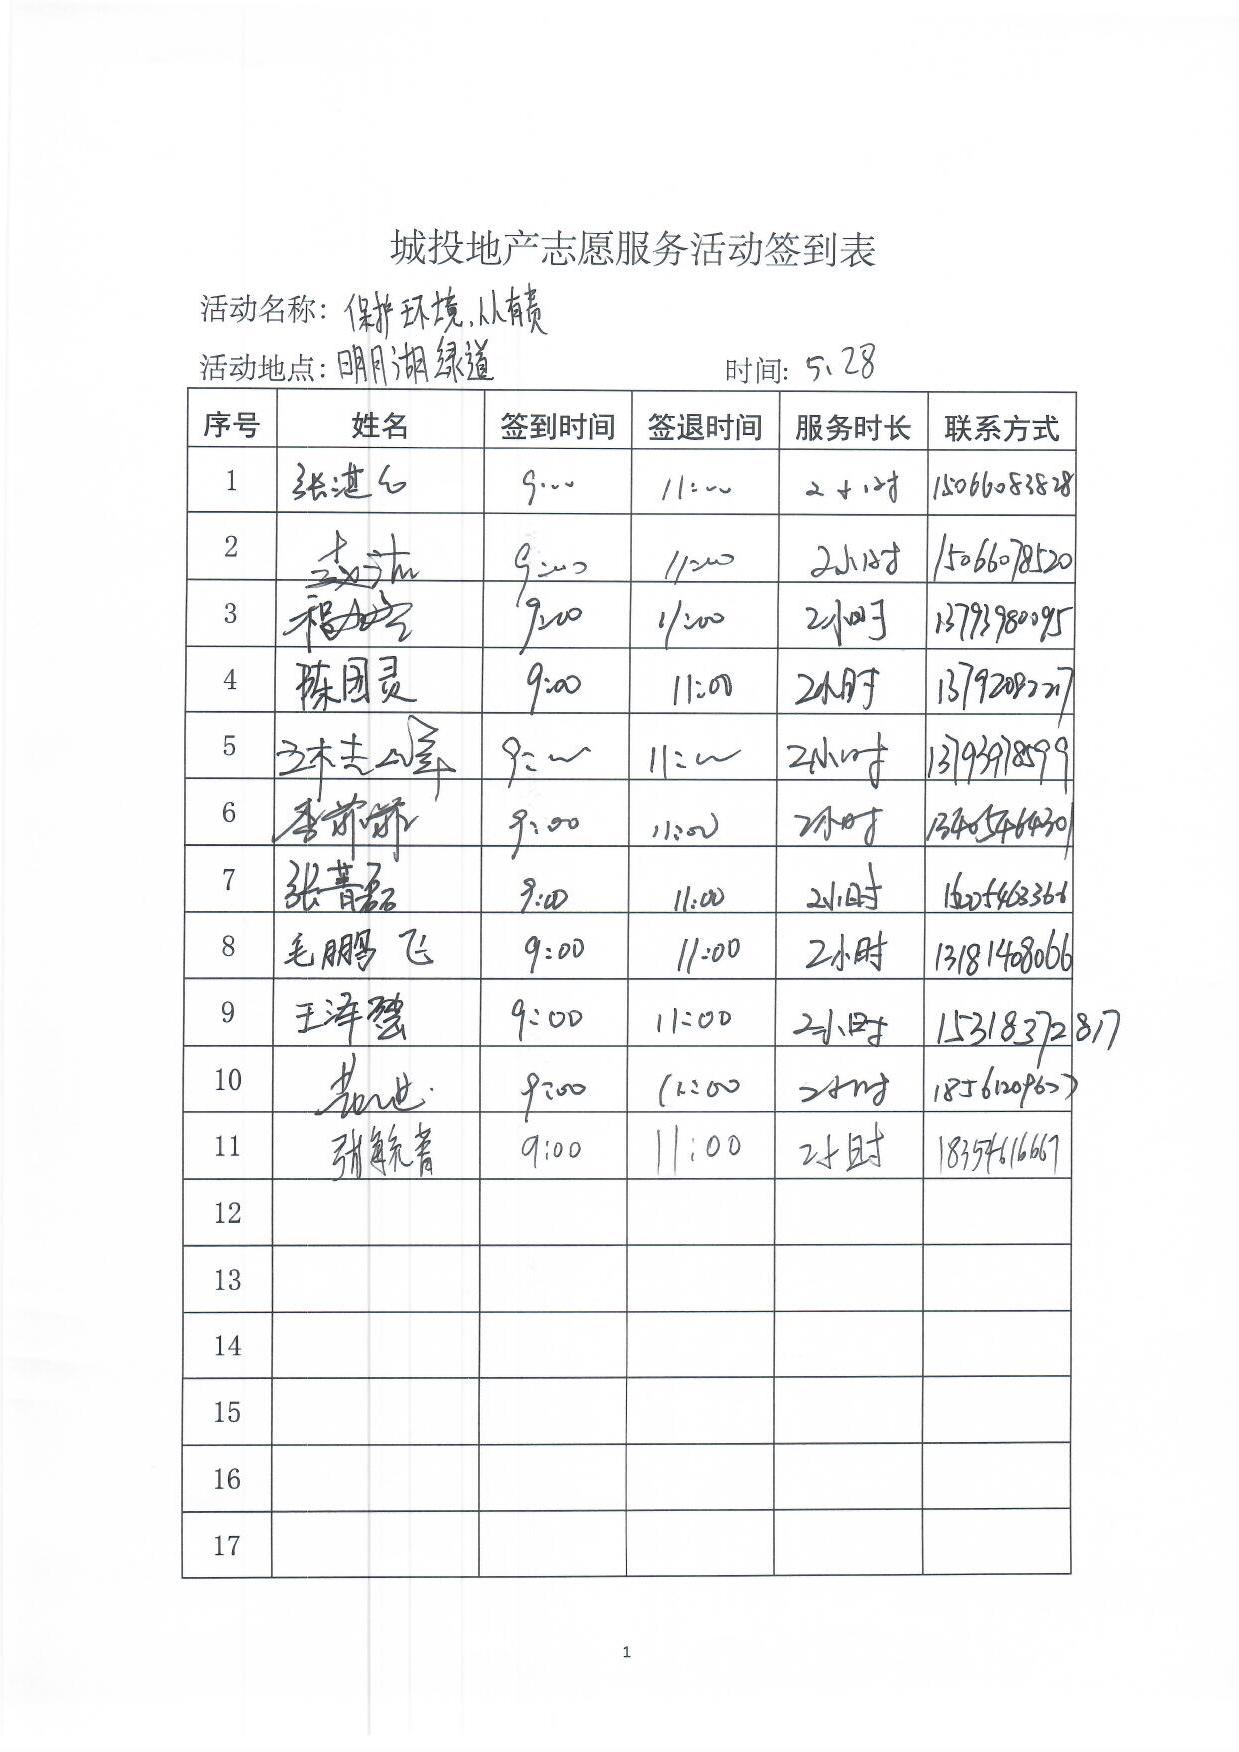 城投地产志愿服务活动签到表
活动名称: 保护环境,人人有责
活动地点: 明月湖绿道 时间: 5.28
序号 姓名 签到时间 签退时间 服务时长 联系方式
1 9:00 11:00 2小时 15066083828
2 9:00 11:00 2小时 15066078520
3 9:00 11:00 2小时 13793980095
4 陈国灵 9:00 11:00 2小时 13792082227
5 9:00 11:00 2小时 13793978599
6 李 9:00 11:00 2小时 13405464301
7 张菁磊 9:00 11:00 2小时
8 毛鹏飞 9:00 11:00 2小时 13181408066
9 王泽 9:00 11:00 2小时 15318372817
10 9:00 11:00 2小时
11 张毓菁 9:00 11:00 2小时 18354616667
12
13
14
15
16
17
1